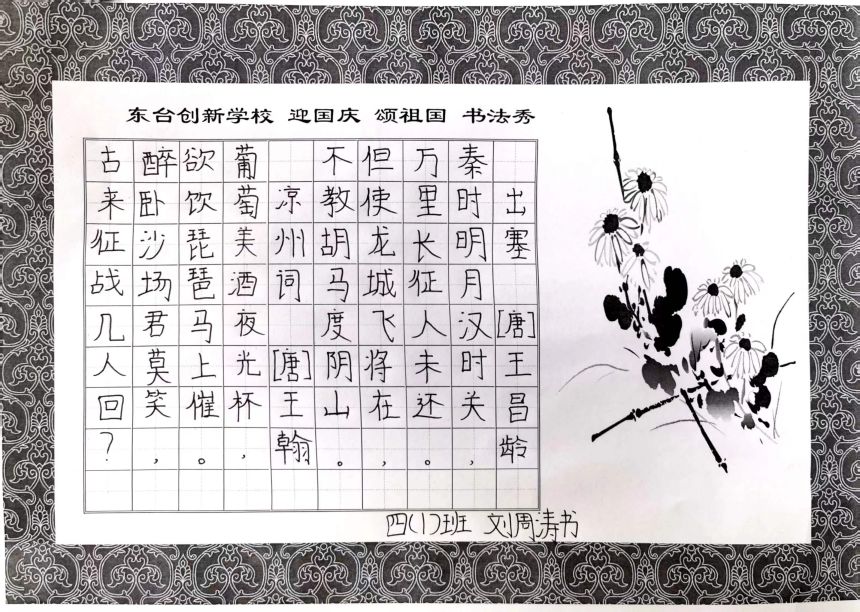 东台创新学校 迎国庆 颂祖国 书法秀
出塞[唐]王昌龄
秦时明月汉时关，
万里长征人未还。
但使龙城飞将在，
不教胡马度阴山。
凉州词[唐]王翰
葡萄美酒夜光杯，
欲饮琵琶马上催。
醉卧沙场君莫笑，
古来征战几人回？
四(1)班 刘周涛书